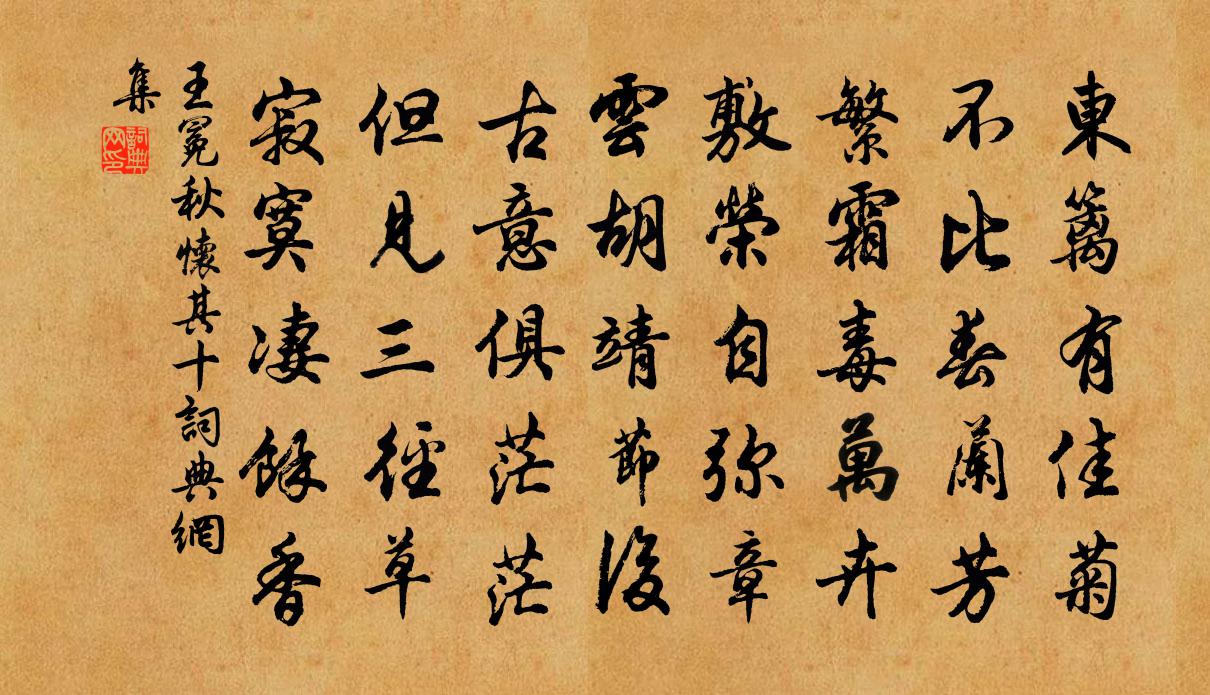 東篱有佳菊
不比春蘭芳
繁霜毒萬卉
敷榮自弥章
雲胡靖節後
古意俱茫茫
但見三徑草
寂寞凄餘香
王冕秋懷其十詞典網
集
詞典
网印